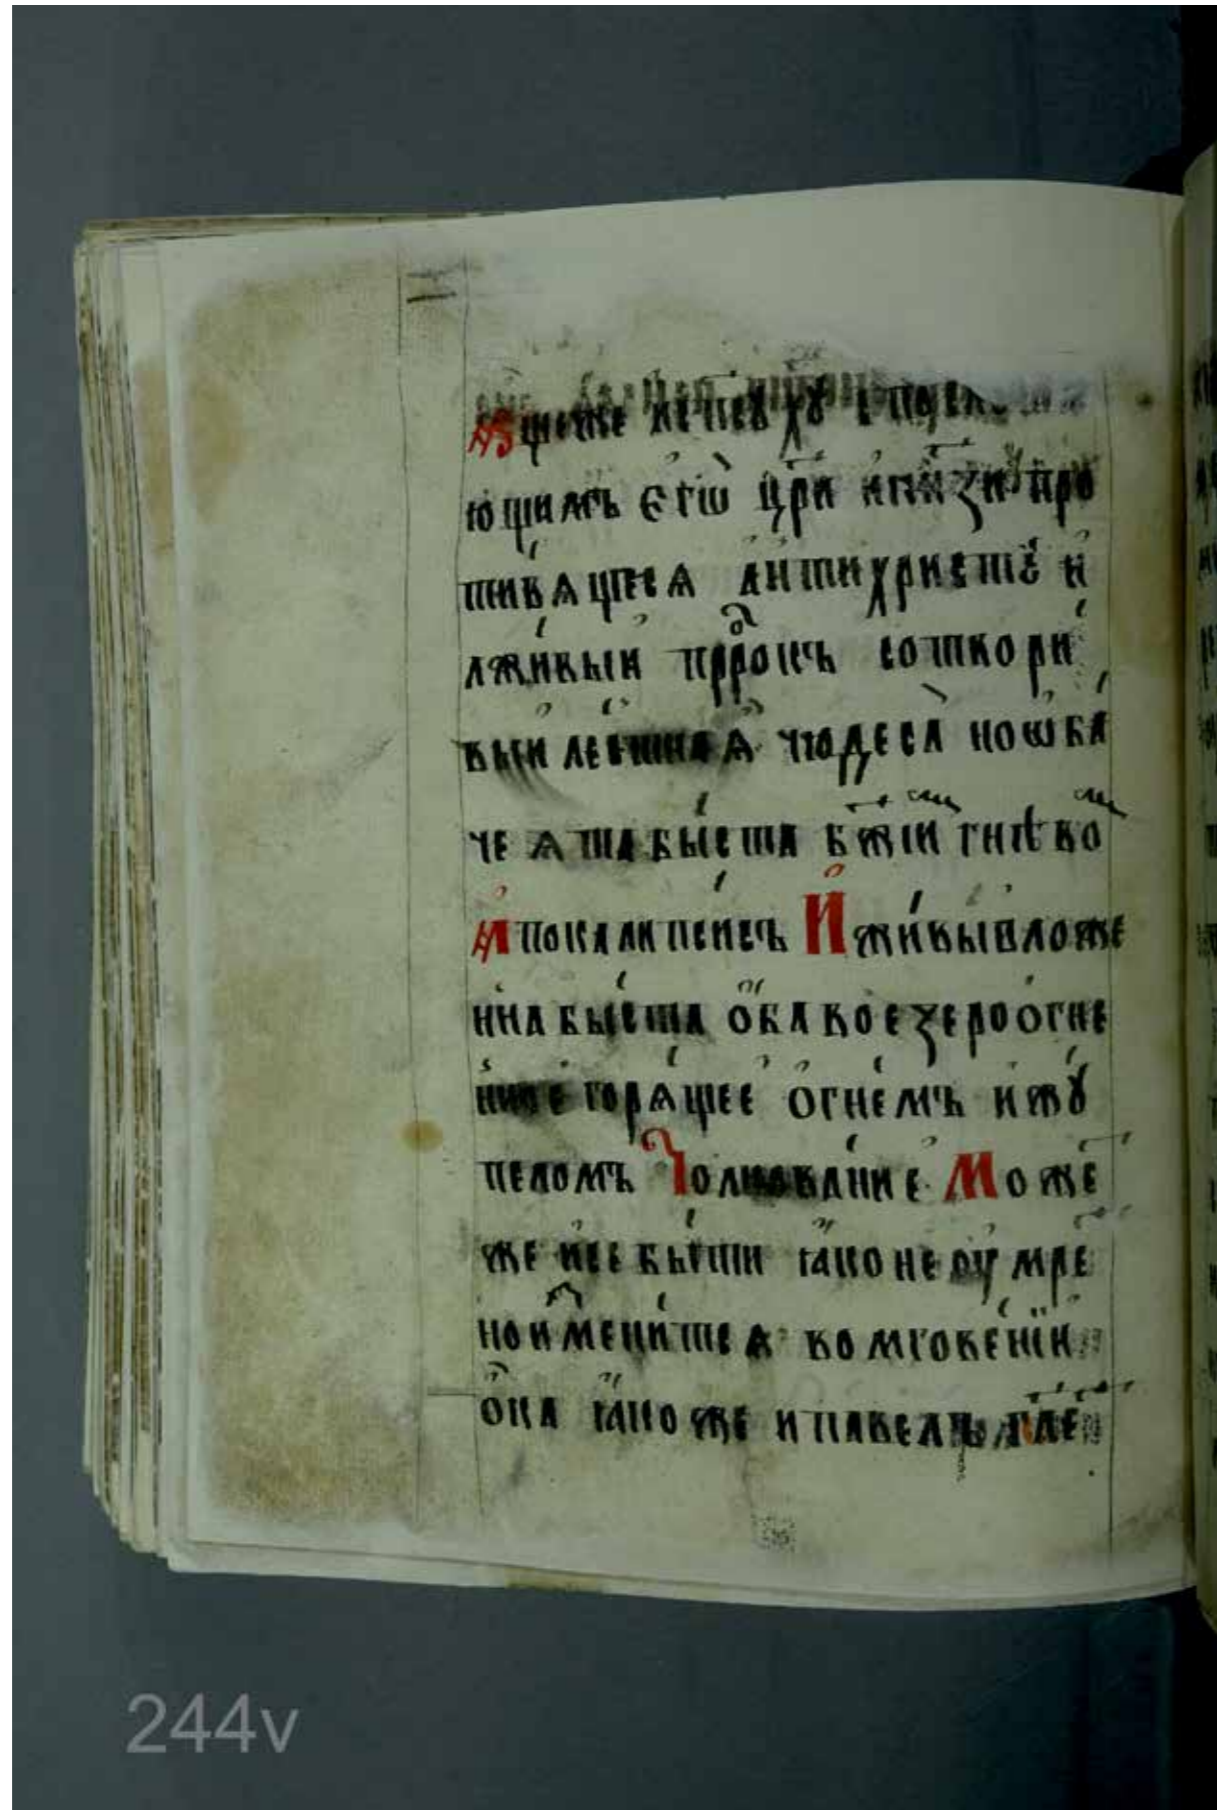 ющимъ єгѡ̀ цр҃и и҆ кнѧ҃зи про
ти́вѧщесѧ а҆нтихристꙋ̀ и҆
лжи́выи прⷪ҇ркъ сотвори́
выи лестнаѧ чюдеса̀ но ѡ҆ба́
че ѧта бы́ста бж҃іи гнѣво
А҆покалиѱисъ И҆ жи́вы вло́же
нна бы́ста ѻ҆ба во е҆зеро ѻ҆́гне
нное горѧ́щее ѻ҆гне́мъ и жꙋ́
пеломъ Толкова́ние Може
же и҆ се бы́ти ꙗ҆ко не оу҆мре
но и҆змени́тсѧ во мгнове́нїи
ѻ҆ка ꙗ҆коже и павелъ гл҃е
244v